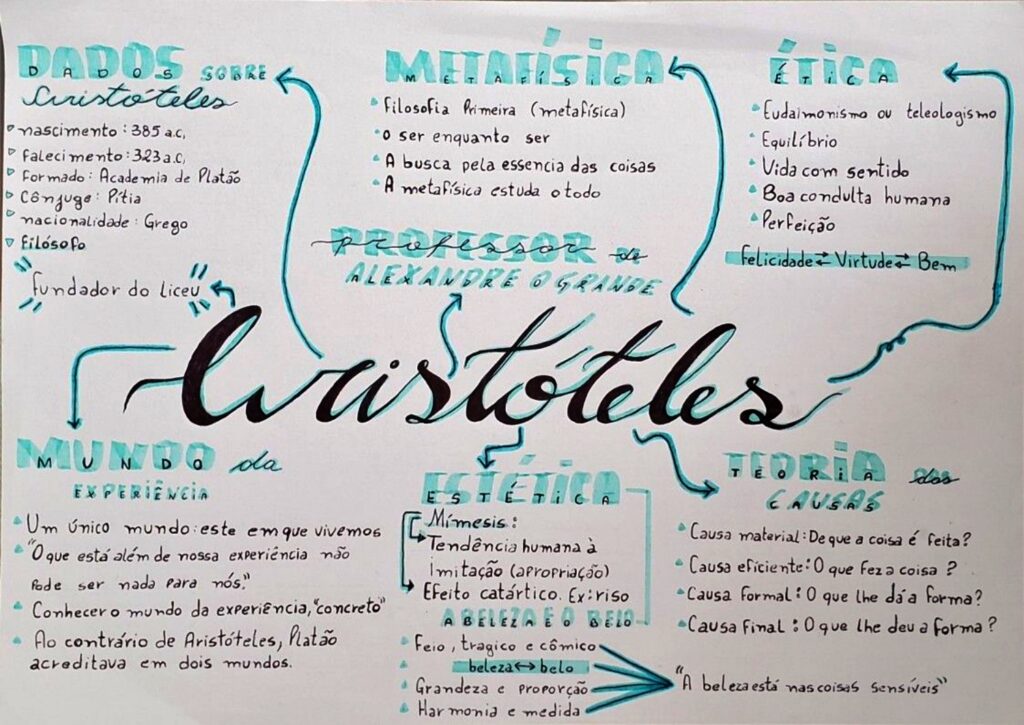 DADOS SOBRE
Aristóteles
nascimento: 385 a.C,
falecimento: 323 a.C,
Formado: Academia de Platão
Cônjuge: Pítia
nacionalidade: Grego
Filósofo
fundador do liceu
METAFÍSICA
Filosofia Primeira (metafísica)
O ser enquanto ser
A busca pela essencia das coisas
A metafísica estuda o todo
PROFESSOR de
ALEXANDRE O GRANDE
ÉTICA
Eudaimonismo ou teleologismo
Equilíbrio
Vida com sentido
Boa condulta humana
Perfeição
Felicidade ⇄ Virtude ⇄ Bem
Aristóteles
MUNDO da
EXPERIÊNCIA
Um único mundo: este em que vivemos
"O que está além de nossa experiência não
pode ser nada para nós."
Conhecer o mundo da experiência, "concreto"
Ao contrário de Aristóteles, Platão
acreditava em dois mundos.
ESTÉTICA
Mímesis:
Tendência humana à
Imitação (apropriação)
Efeito catártico. Ex: riso
A BELEZA E O BELO
Feio, tragico e cômico
beleza ↔ belo
Grandeza e proporção
Harmonia e medida
"A beleza está nas coisas sensíveis"
TEORIA das
CAUSAS
Causa material: De que a coisa é feita?
Causa eficiente: O que fez a coisa?
Causa formal: O que lhe dá a forma?
Causa final: O que lhe deu a forma?